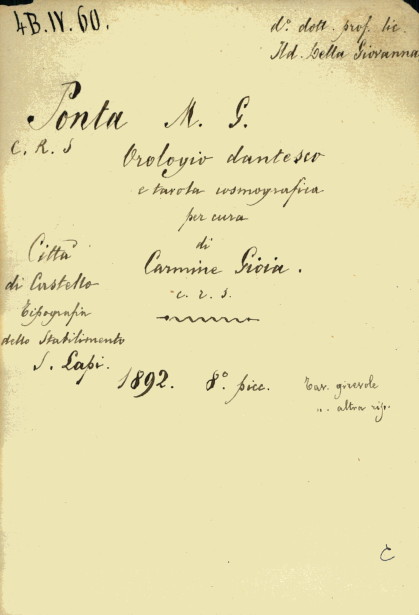 4B.IV.60.
d.º dott. prof. lic.
Ild. Della Giovanna
Ponta M. G.
C. R. S
Orologio dantesco
e tavola cosmografica
per cura
di
Carmine Gioia.
c. r. s.
Città
di Castello
Tipografia
dello Stabilimento
S. Lapi.
1892. 8.º picc.
Tav. girevole
„ . altra rip.